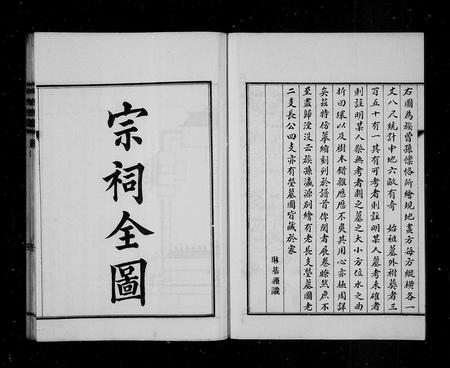 右圖為族曾孫懷恪所繪規地畫方每方縱橫各一
丈八尺統計中地六畝有奇　始祖墓外祔葬者三
百五十有一其有可考者則註明某人墓考未確者
則註明某人祭無考者闕之墓之大小方位水之曲
折回環以及樹木錯雜應應不爽其用心亦極周詳
矣茲特仿摹縮刻列於譜首俾閱者展卷瞭然庶不
至盡歸湮沒云族孫瀛源別繪有老長支塋墓圖老
二支長公四支亦有塋墓圖皆藏於家
琳基謹識
宗祠全圖